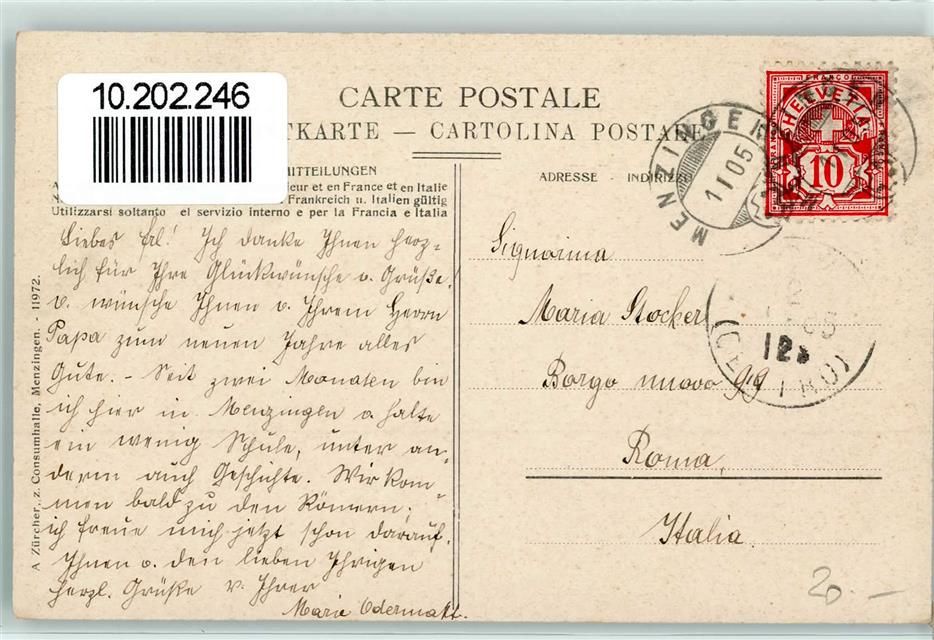 10.202.246
CARTE POSTALE
TKARTE — CARTOLINA POSTALE
MITTEILUNGEN
leur et en France et en Italie
Frankreich u. Italien gültig
Utilizzarsi soltanto el servizio interno e per la Francia e Italia
ADRESSE - INDIRIZZO
FRANCO
HELVETIA
10
MENZINGEN
1 I 05
Liebes Frl! Ich danke Ihnen herz-
lich für Ihre Glückwünsche u. Grüße,
u. wünsche Ihnen u. Ihrem Herrn
Papa zum neuen Jahre alles
Gute. - Seit zwei Monaten bin
ich hier in Menzingen u. halte
ein wenig Schule, unter an-
derm auch Geschichte. Wir kom-
men bald zu den Römern;
ich freue mich jetzt schon darauf.
Ihnen u. den lieben Ihrigen
herzl. Grüße v. Ihrer
Marie Odermatt.
Signorina
Maria Stocker
Borgo nuovo 99
Roma,
Italia.
12
20.-
A Zürcher, z. Consumhalle, Menzingen. - 11972.